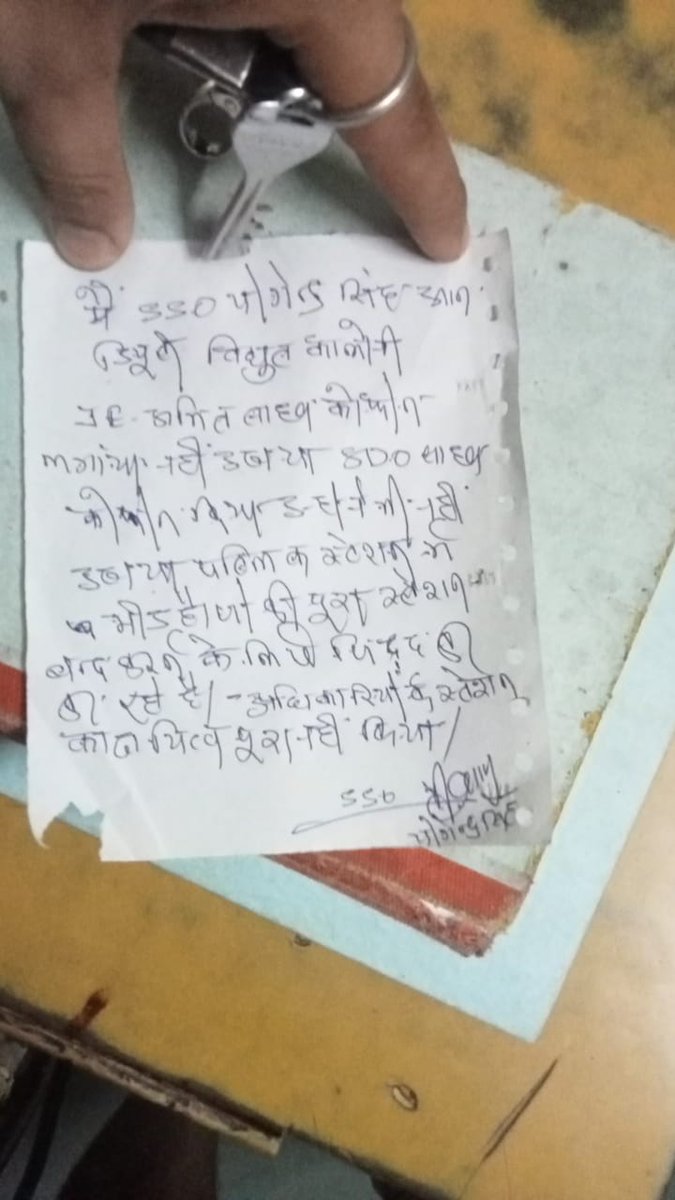 मैं SSO योगेन्द्र सिंह आन
ड्यूटी विद्युत कालोनी
JE अमित साहब को फोन
लगाया नहीं उठाया SDO साहब
को फोन किया उन्होंने भी नहीं
उठाया पब्लिक स्टेशन में
भीड है जो की पूरा स्टेशन
बन्द करने के लिये
हो रहे है। अधिकारियों के स्टेशन
का दायित्व पूरा नहीं किया।
SSO
योगेन्द्र सिंह